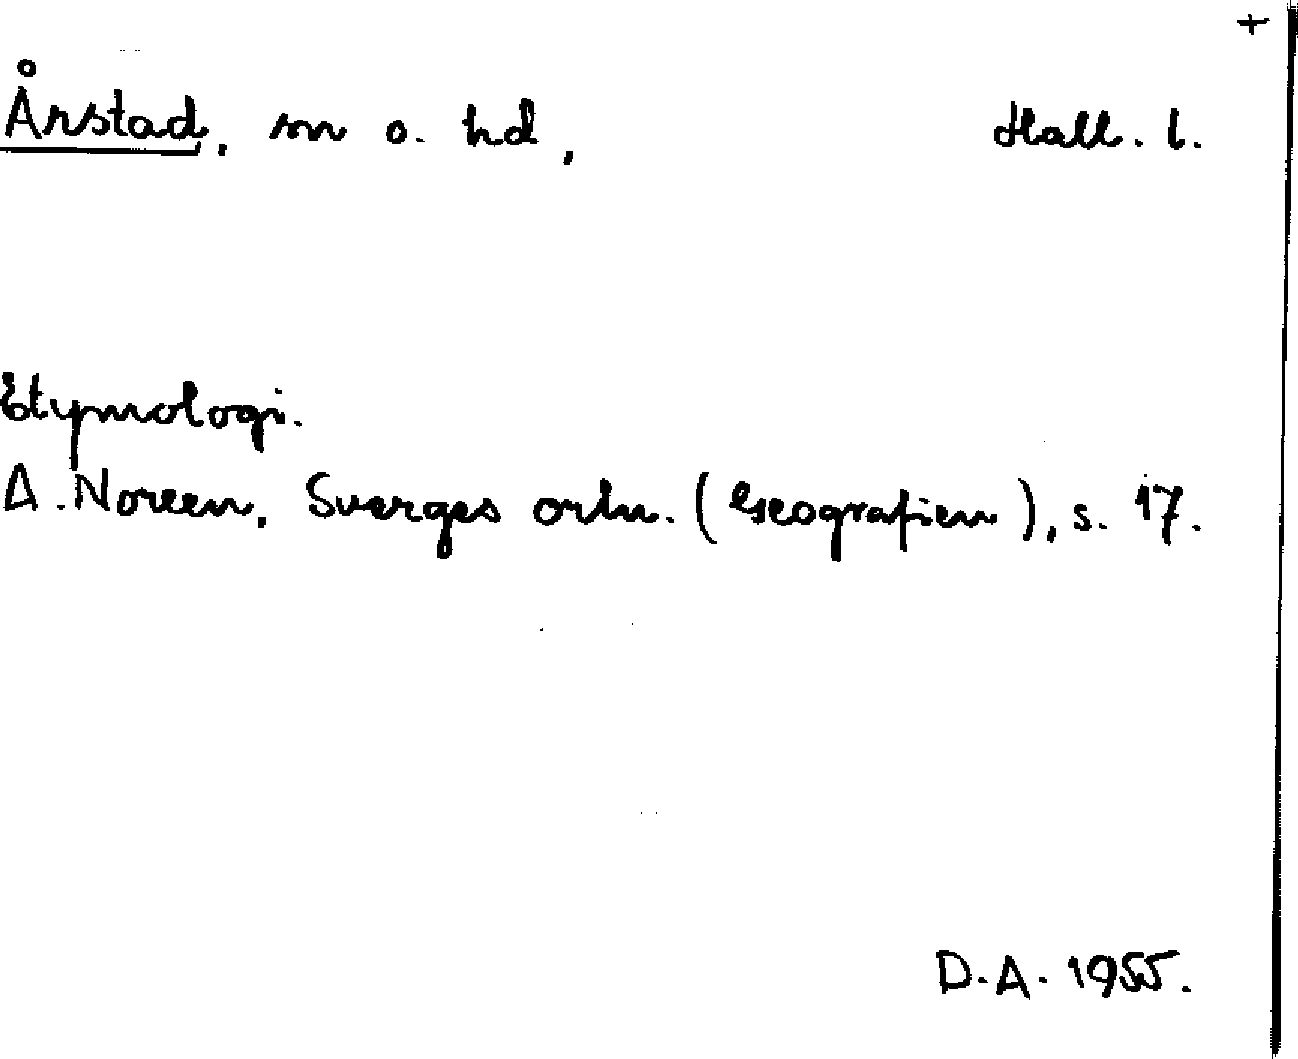 +
Årstad, sn o. hd, Hall. l.
Etymologi.
A. Noreen, Sverges ortn. (Geografien), s. 17.
D.A. 1955.